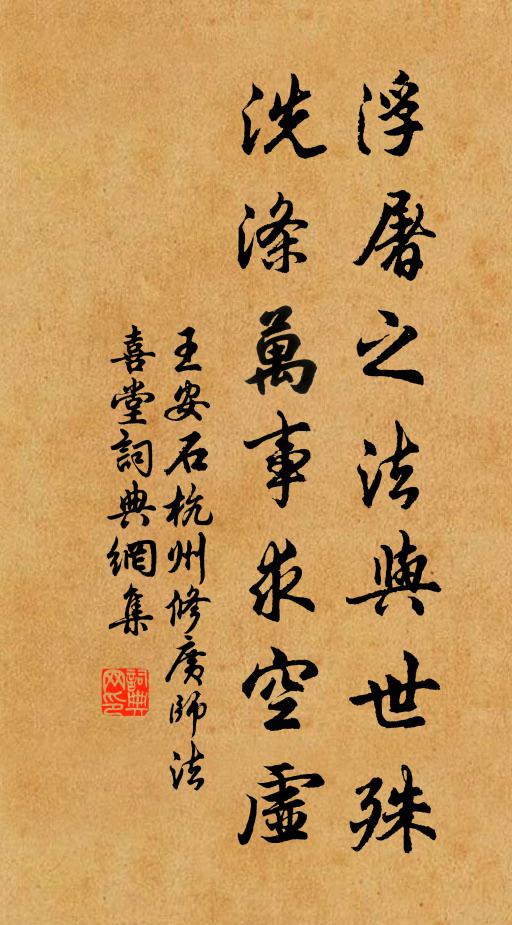 浮屠之法與世殊
洗滌萬事求空虛
王安石杭州修廣師法
喜堂詞典網集
詞典网印